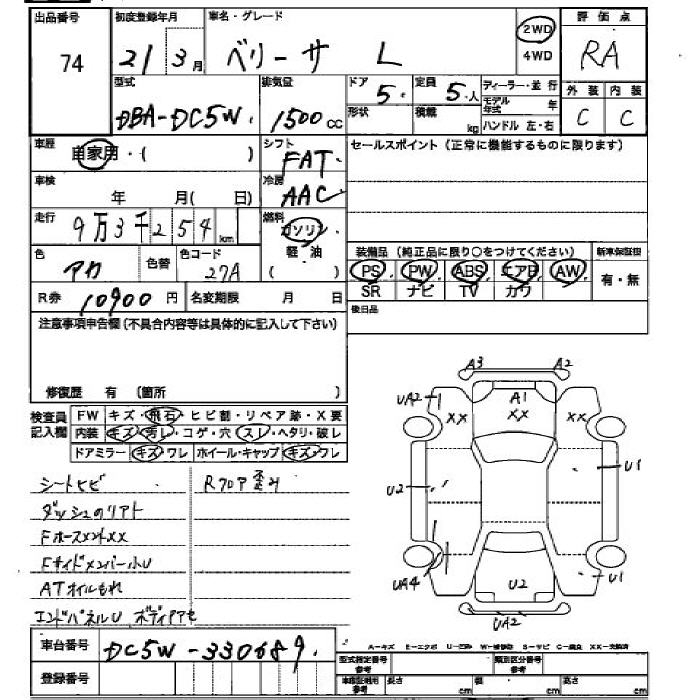 出品番号 初度登録年月 車名・グレード 評価点
74 21 3月 ベリーサ L 2WD 4WD RA
型式 排気量 ドア 定員 ディーラー・並行 外装 内装
DBA-DC5W 1500cc 5 5人 モデル年式 年 C C
形状 積載 kg ハンドル 左・右
車歴 自家用・( ) シフト FAT セールスポイント(正常に機能するものに限ります)
車検 年 月( 日) 冷房 AAC
走行 9万3千254km 燃料 ガソリン 軽油 ( )
色 アカ 色替 色コード 27A 装備品(純正品に限り○をつけてください) 新車保証書
PS PW ABS エアB AW 有・無
SR ナビ TV カワ
R券 10900円 名変期限 月 日 後日品
注意事項申告欄(不具合内容等は具体的に記入して下さい)
修復歴 有 (箇所 )
検査員記入欄 FW キズ・飛石・ヒビ割・リペア跡・X要
内装 キズ・汚レ・コゲ・穴・スレ・ヘタリ・破レ
ドアミラー キズ・ワレ ホイール・キャップ キズ・ワレ
シートヒビ Rフロア歪み
ダッシュのリアト
FホースメントXX
Fサイドメンバー小U
ATオイルもれ
エンドパネルU
A3 A2
UA2 A1
XX XX XX
U2 U1
UA4 U2 U1
UA2
車台番号 DC5W-330689
登録番号
A-キズ E-エクボ U-凹み W-補修跡 S-サビ C-腐食 XX-交換済
型式指定番号 参考 類別区分番号 参考
車庫証明用 参考 長さ cm 幅 cm 高さ cm